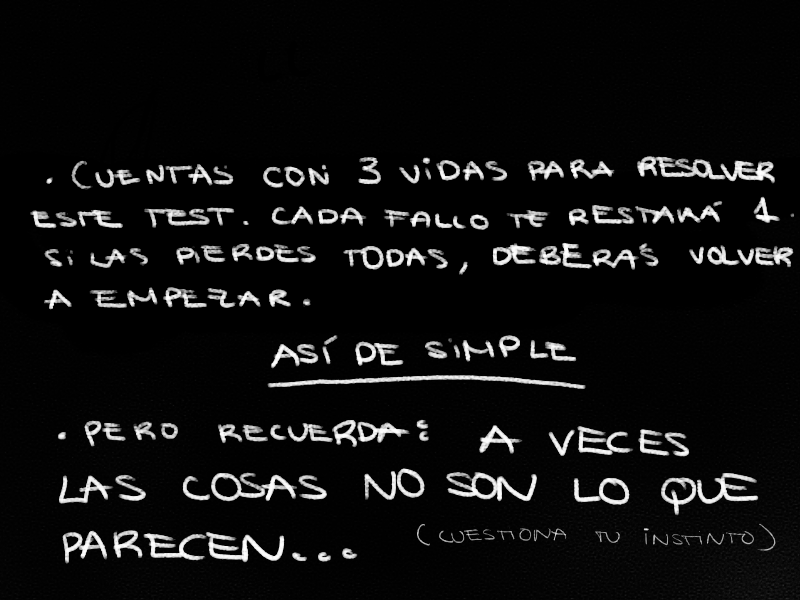 . CUENTAS CON 3 VIDAS PARA RESOLVER
ESTE TEST. CADA FALLO TE RESTARÁ 1.
Si LAS PIERDES TODAS, DEBERÁS VOLVER
A EMPEZAR.
ASÍ DE SiMPLE
. PERO RECUERDA: A VECES
LAS COSAS NO SON LO QUE
PARECEN... (CUESTIONA TU iNSTINTO)